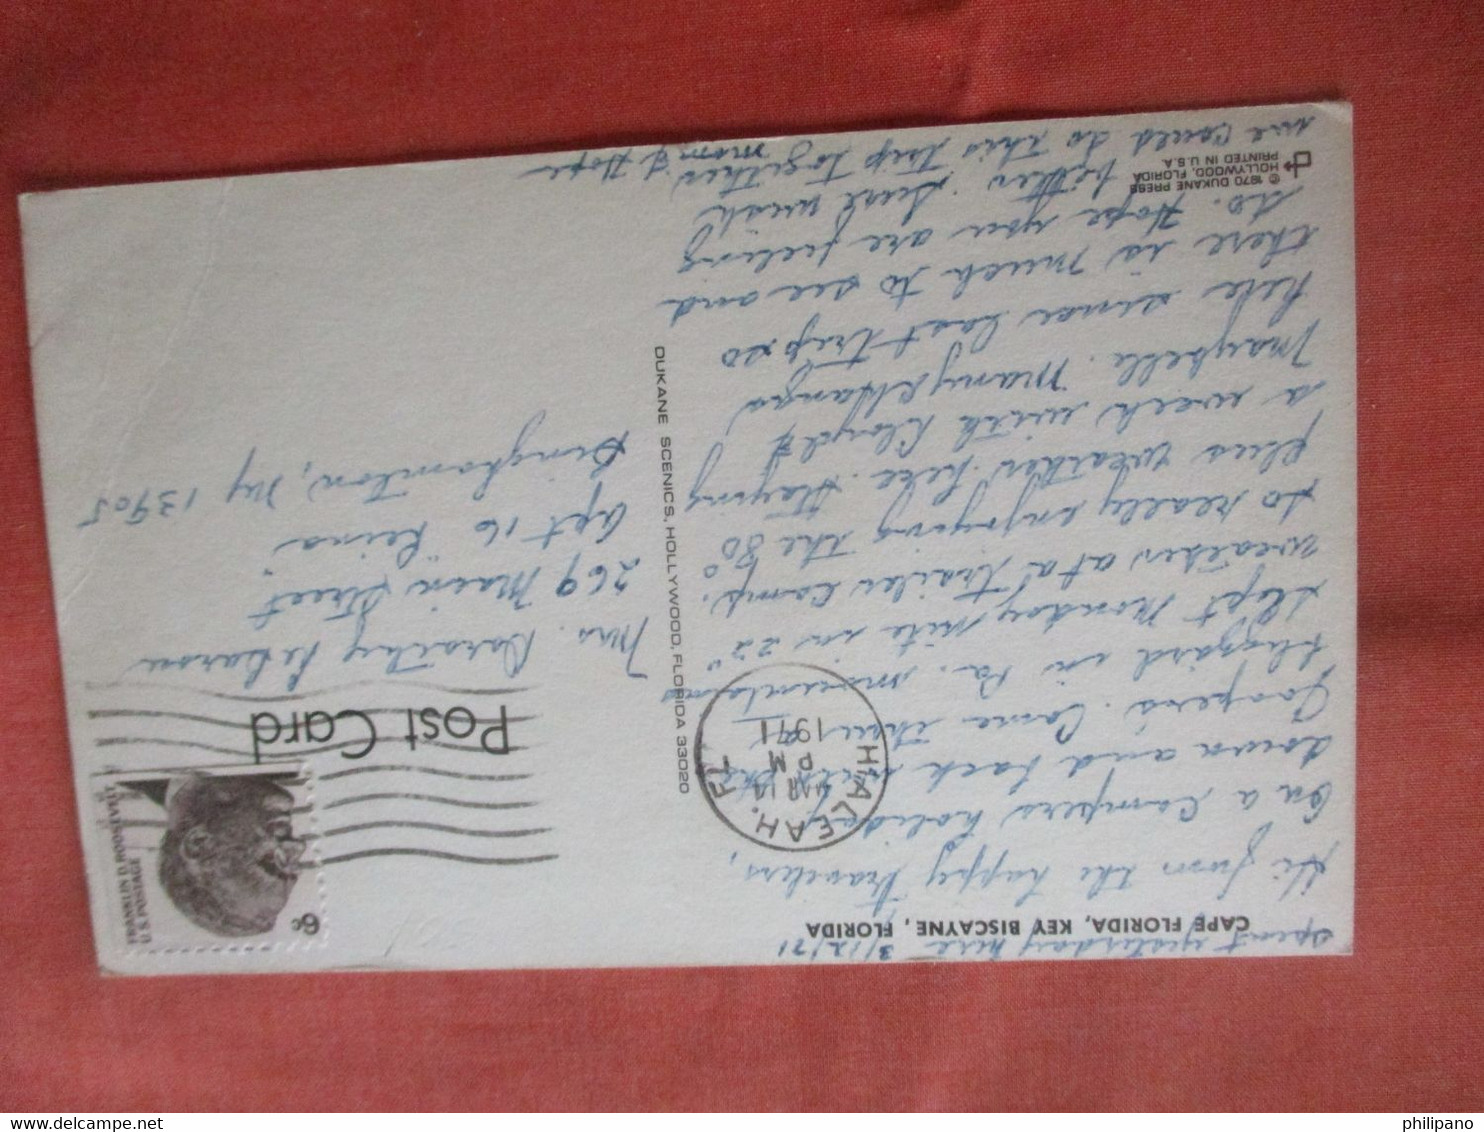 spent yesterday here 3/12/71
CAPE FLORIDA, KEY BISCAYNE, FLORIDA
Hi from the happy travelers,
On a campers holiday
down and back with the
Coopers. Came thru a
blizzard in Pa. mountains
slept Monday nite in 22°
weather at a trailer camp.
So really enjoying the 80°
plus weather here. Staying
a week with Cloyd &
Maybelle. Many changes
here since last trip so
there is much to see and
do. Hope you are feeling
better. Sure wish
we could do this trip together
Mom & Hope
© 1970 DUKANE PRESS
HOLLYWOOD, FLORIDA
PRINTED IN U.S.A.
DUKANE SCENICS, HOLLYWOOD, FLORIDA 33020
HIALEAH, FL
MAR 14
PM
1971
6c
FRANKLIN D. ROOSEVELT
U.S. POSTAGE
Post Card
Mrs. Dorothy LeBaron
269 Main Street
Apt 16
Binghamton, NY 13905
philipano